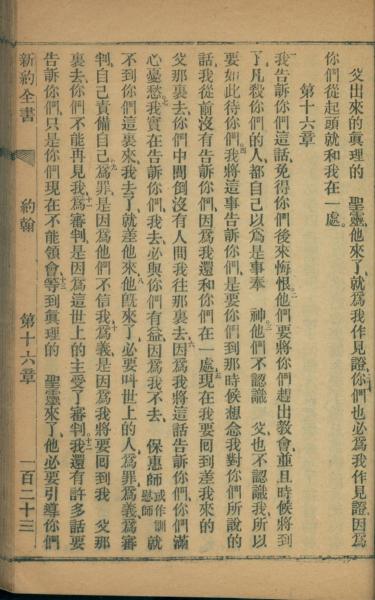 父出來的眞理的　聖靈他來了就爲我作見證你們也必爲我作見證因爲
你們從起頭就和我在一處
第十六章
我告訴你們這話免得你們後來悔恨他們要將你們趕出教會並且時候將到
了凡殺你們的人都自己以爲是事奉　神他們不認識　父也不認識我所以
要如此待你們我將這事告訴你們是要你們到那時候想念我對你們所說的
話我從前沒有告訴你們因爲我還和你們在一處現在我要回到差我來的
父那裏去你們中間倒沒有人問我往那裏去因爲我將這話告訴你們你們滿
心憂愁我實在告訴你們我去必與你們有益因爲我不去　保惠師或作訓慰師就
不到你們這裏來我去了就差他來他旣來了必要叫世上的人爲罪爲義爲審
判自己責備自己爲罪是因爲他們不信我爲義是因爲我將要回到我　父那
裏去你們不能再見我爲審判是因爲這世上的主受了審判我還有許多話要
告訴你們只是你們現在不能領會等到眞理的　聖靈來了他必要引導你們
新約全書　約翰　第十六章　一百二十三